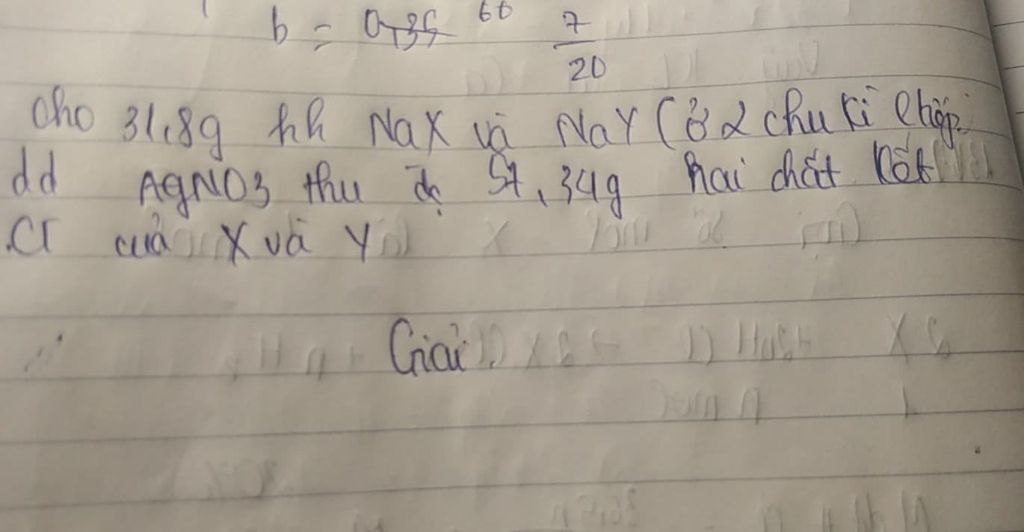 b = 0,35 7/20
Cho 31,8g hh NaX và NaY (ở 2 chu kì
dd AgNO3 thu đc 57,34g hai chất kết
CT của X và Y
Giải